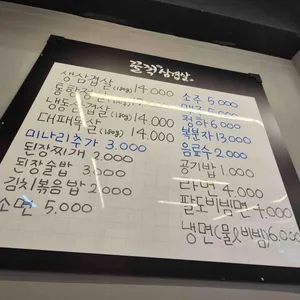 꿀꺽삼겹살
생삼겹살 (180g) 14,000
통항정살 (180g) 14,000
냉동삼겹살 (180g) 14,000
대패목살 (180g) 14,000
미나리추가 3,000
된장찌개 2,000
된장술밥 3,000
김치볶음밥 2,000
소면 5,000
소주 5,000
맥주 5,000
청하 6,000
복분자 13,000
음료수 2,000
공기밥 1,000
라면 4,000
팔도비빔면 4,000
냉면(물&비빔) 6,000